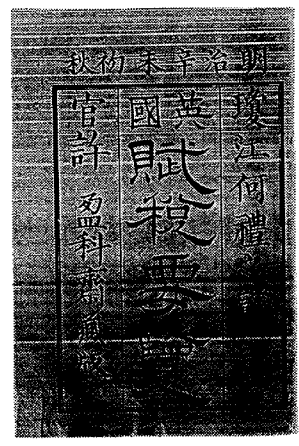 明治辛未初秋
瓊江何禮
英國
賦稅要覽
官許 盈科齋藏版